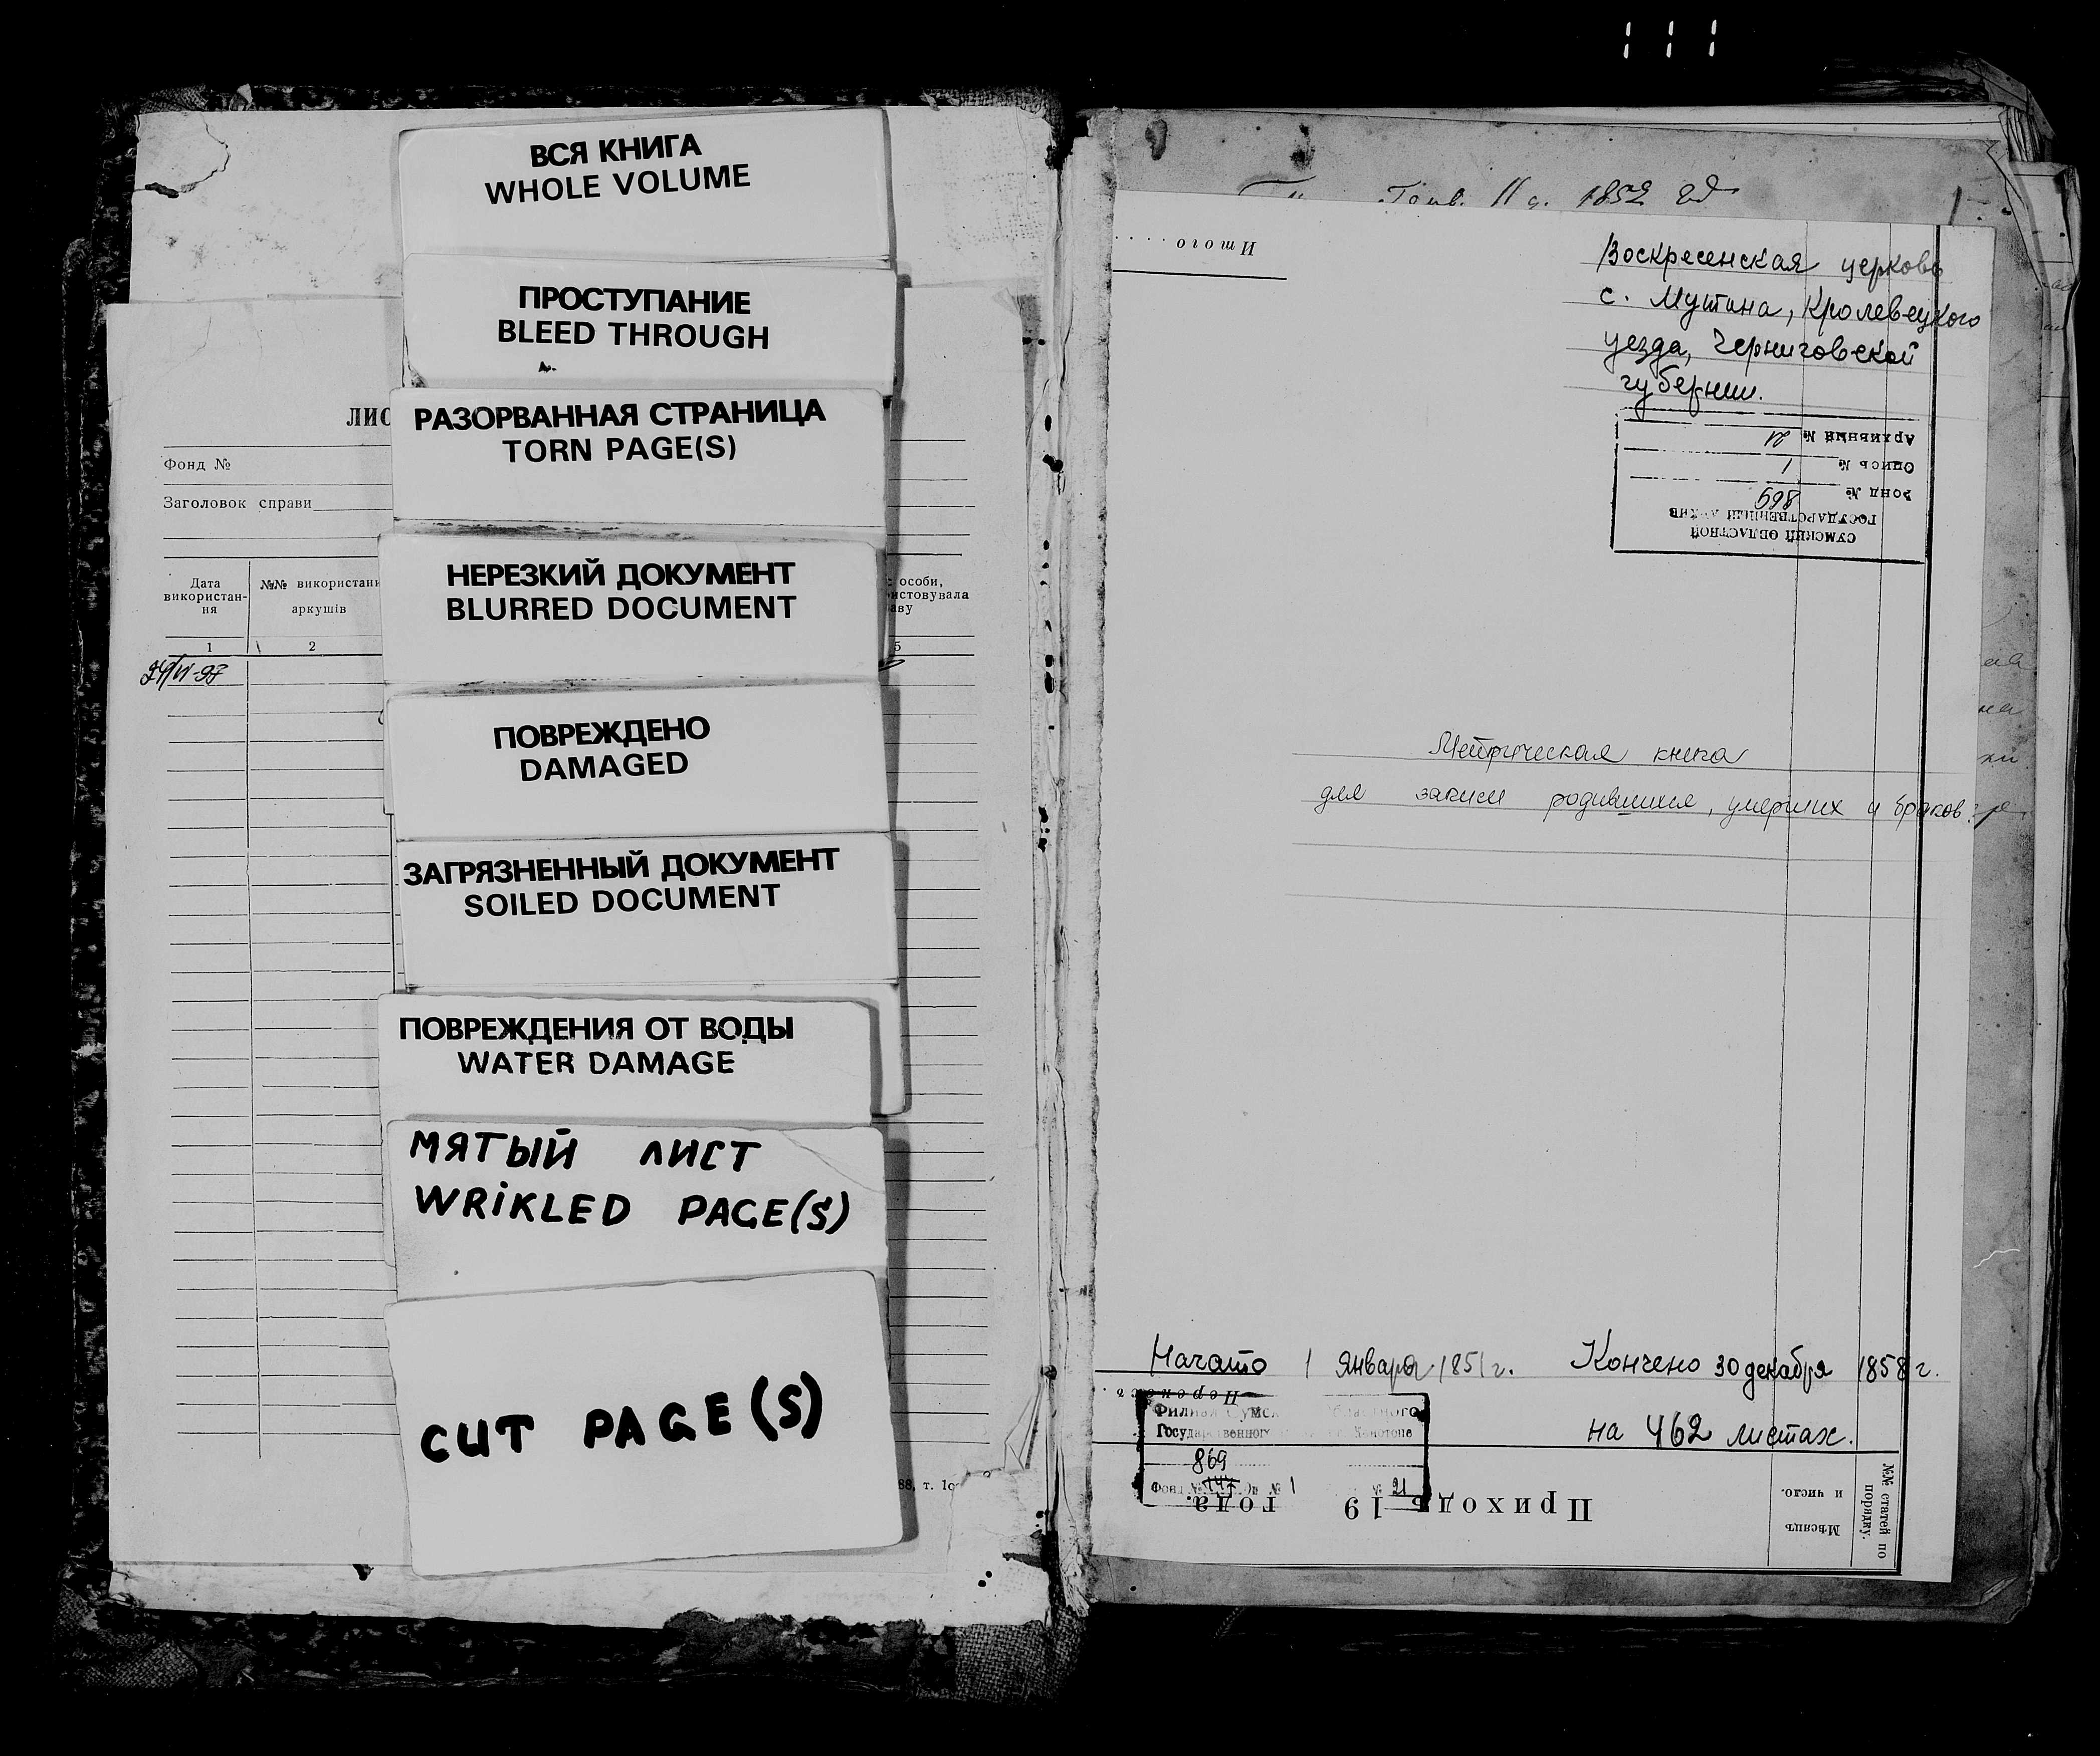 ВСЯ КНИГА
WHOLE VOLUME
ПРОСТУПАНИЕ
BLEED THROUGH
РАЗОРВАННАЯ СТРАНИЦА
TORN PAGE(S)
НЕРЕЗКИЙ ДОКУМЕНТ
BLURRED DOCUMENT
ПОВРЕЖДЕНО
DAMAGED
ЗАГРЯЗНЕННЫЙ ДОКУМЕНТ
SOILED DOCUMENT
ПОВРЕЖДЕНИЯ ОТ ВОДЫ
WATER DAMAGE
МЯТЫЙ ЛИСТ
WRIKLED PAGE(S)
CUT PAGE(S)
ЛИС
Фонд №
Заголовок справи
Дата
використан-
ня
№№ використан
аркушів
особи,
истовувала
аву
1 2 5
88, т.
1852
Итого
Воскресенская церковь
с. Мутина, Кролевецкого
уезда, Черниговской
губернии.
СУМСКИЙ ОБЛАСТНОЙ
ГОСУДАРСТВЕННЫЙ АРХИВ
Фонд № 869
Опись № 1
Архивный № 21
Метрическая книга
для записи родившихся, умерших и браков
Начато 1 января 1851 г. Кончено 30 декабря 1858 г.
на 462 листах.
Филиал Сумс областного
Государственного Конотопе
869
Фонд № 147 Оп № 1 № 21
Приходъ 19 года.
Мѣсяцъ
и число.
№№ статей по
порядку.